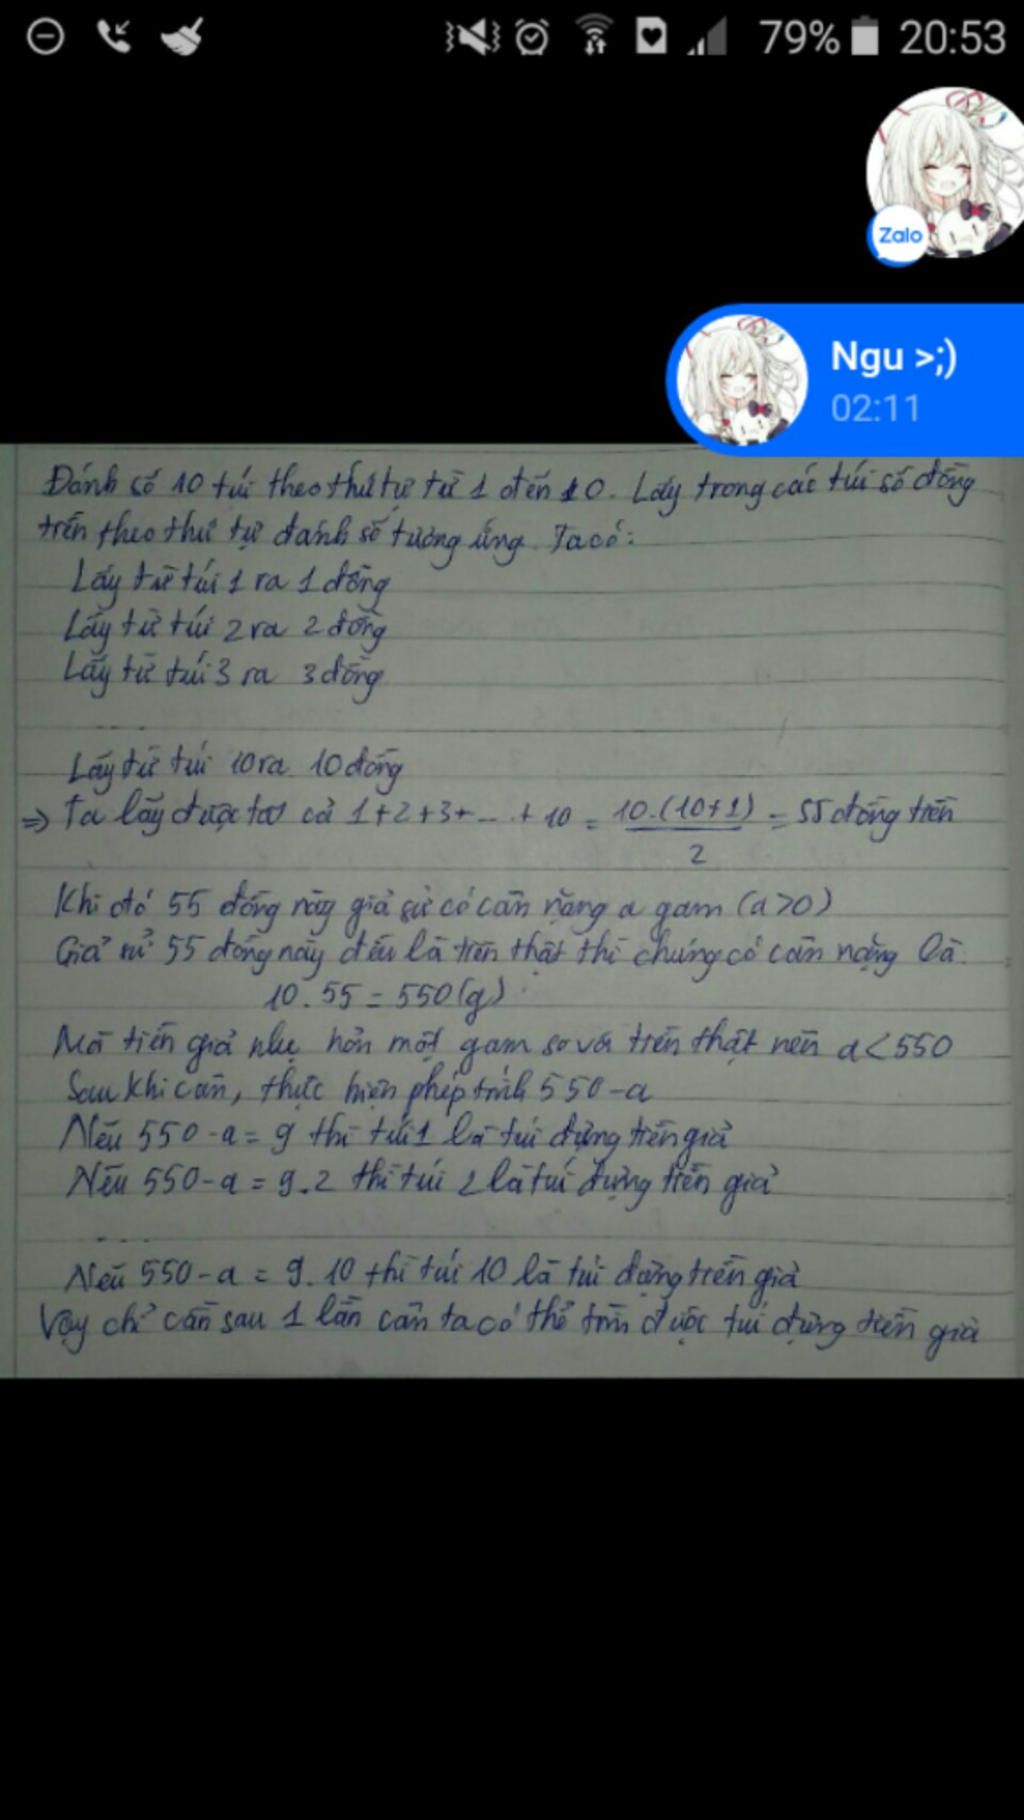 79% 20:53
Zalo
Ngu >;)
02:11
Đánh số 10 túi theo thứ tự từ 1 đến 10. Lấy trong các túi số đồng
trên theo thứ tự đánh số tương ứng. Ta có:
Lấy từ túi 1 ra 1 đồng
Lấy từ túi 2 ra 2 đồng
Lấy từ túi 3 ra 3 đồng
....
Lấy từ túi 10 ra 10 đồng
=> Ta lấy được tất cả 1+2+3+...+10 = 10.(10+1) / 2 = 55 đồng tiền
Khi đó 55 đồng này giả sử có cân nặng a gam (a>0)
Giả sử 55 đồng này đều là tiền thật thì chúng có cân nặng là:
10.55 = 550 (g)
Mà tiền giả nhẹ hơn một gam so với tiền thật nên a<550
Sau khi cân, thực hiện phép tính 550-a
Nếu 550-a = 9 thì túi 1 là túi đựng tiền giả
Nếu 550-a = 9.2 thì túi 2 là túi đựng tiền giả
....
Nếu 550-a = 9.10 thì túi 10 là túi đựng tiền giả
Vậy chỉ cần sau 1 lần cân ta có thể tìm được túi đựng tiền giả